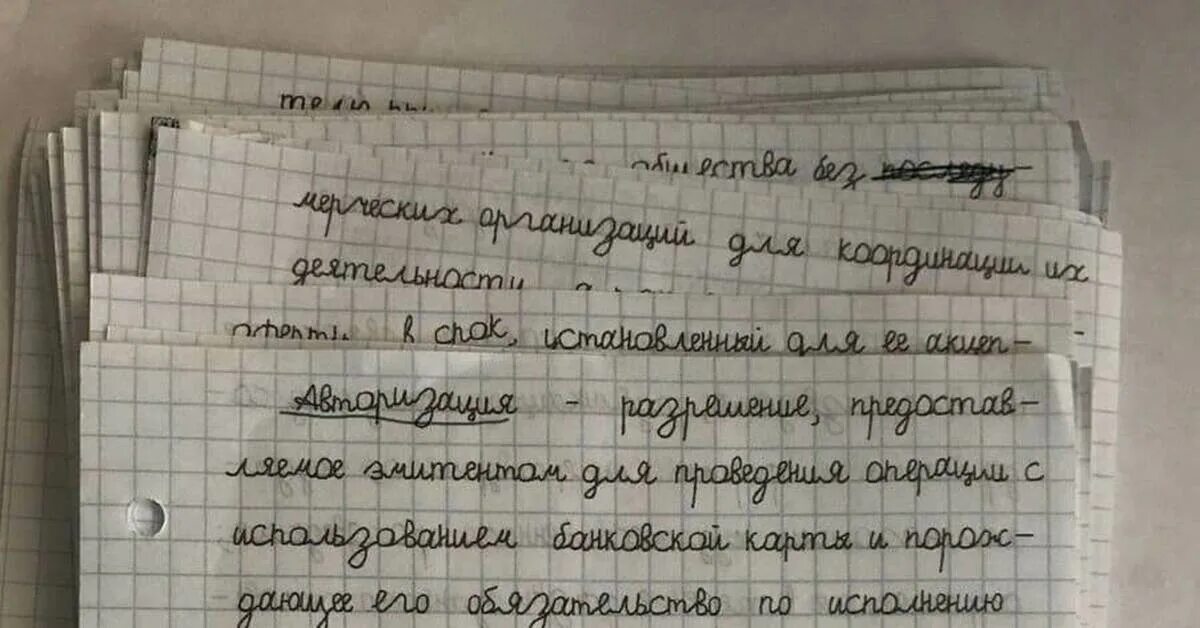 общества без
мерческих организаций для координации их
деятельности
в срок, установленный для ее акцеп-
Авторизация - разрешение, предостав-
ляемое эмитентом для проведения операции с
использованием банковской карты и порож-
дающее его обязательство по исполнению